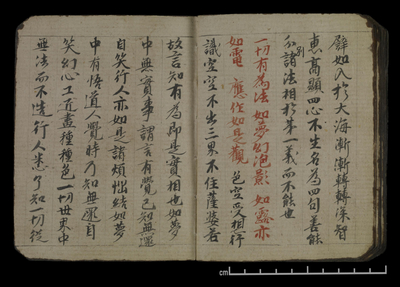 譬如入於大海漸漸轉轉深智
恵高顯四心不生名為四句善能
分別諸法相於第一義而不能也
一切有為法如夢幻泡影如露亦
如電應作如是觀色空空相行
識空空不出三界不住薩婆若
故言知有為即是實相也如夢
中無實事謂言有覺已知無還
自笑行人亦如是諸煩惱結如夢
中有悟道人覺時乃知無還自
笑幻心工造盡種種色一切世界中
無法而不造行人悉了知一切從